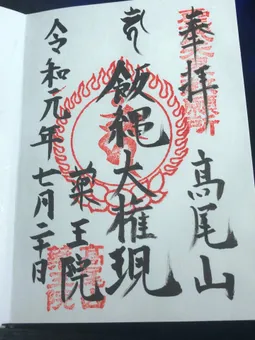 奉拝
髙尾山
飯縄大権現
薬王院
令和元年七月二十日